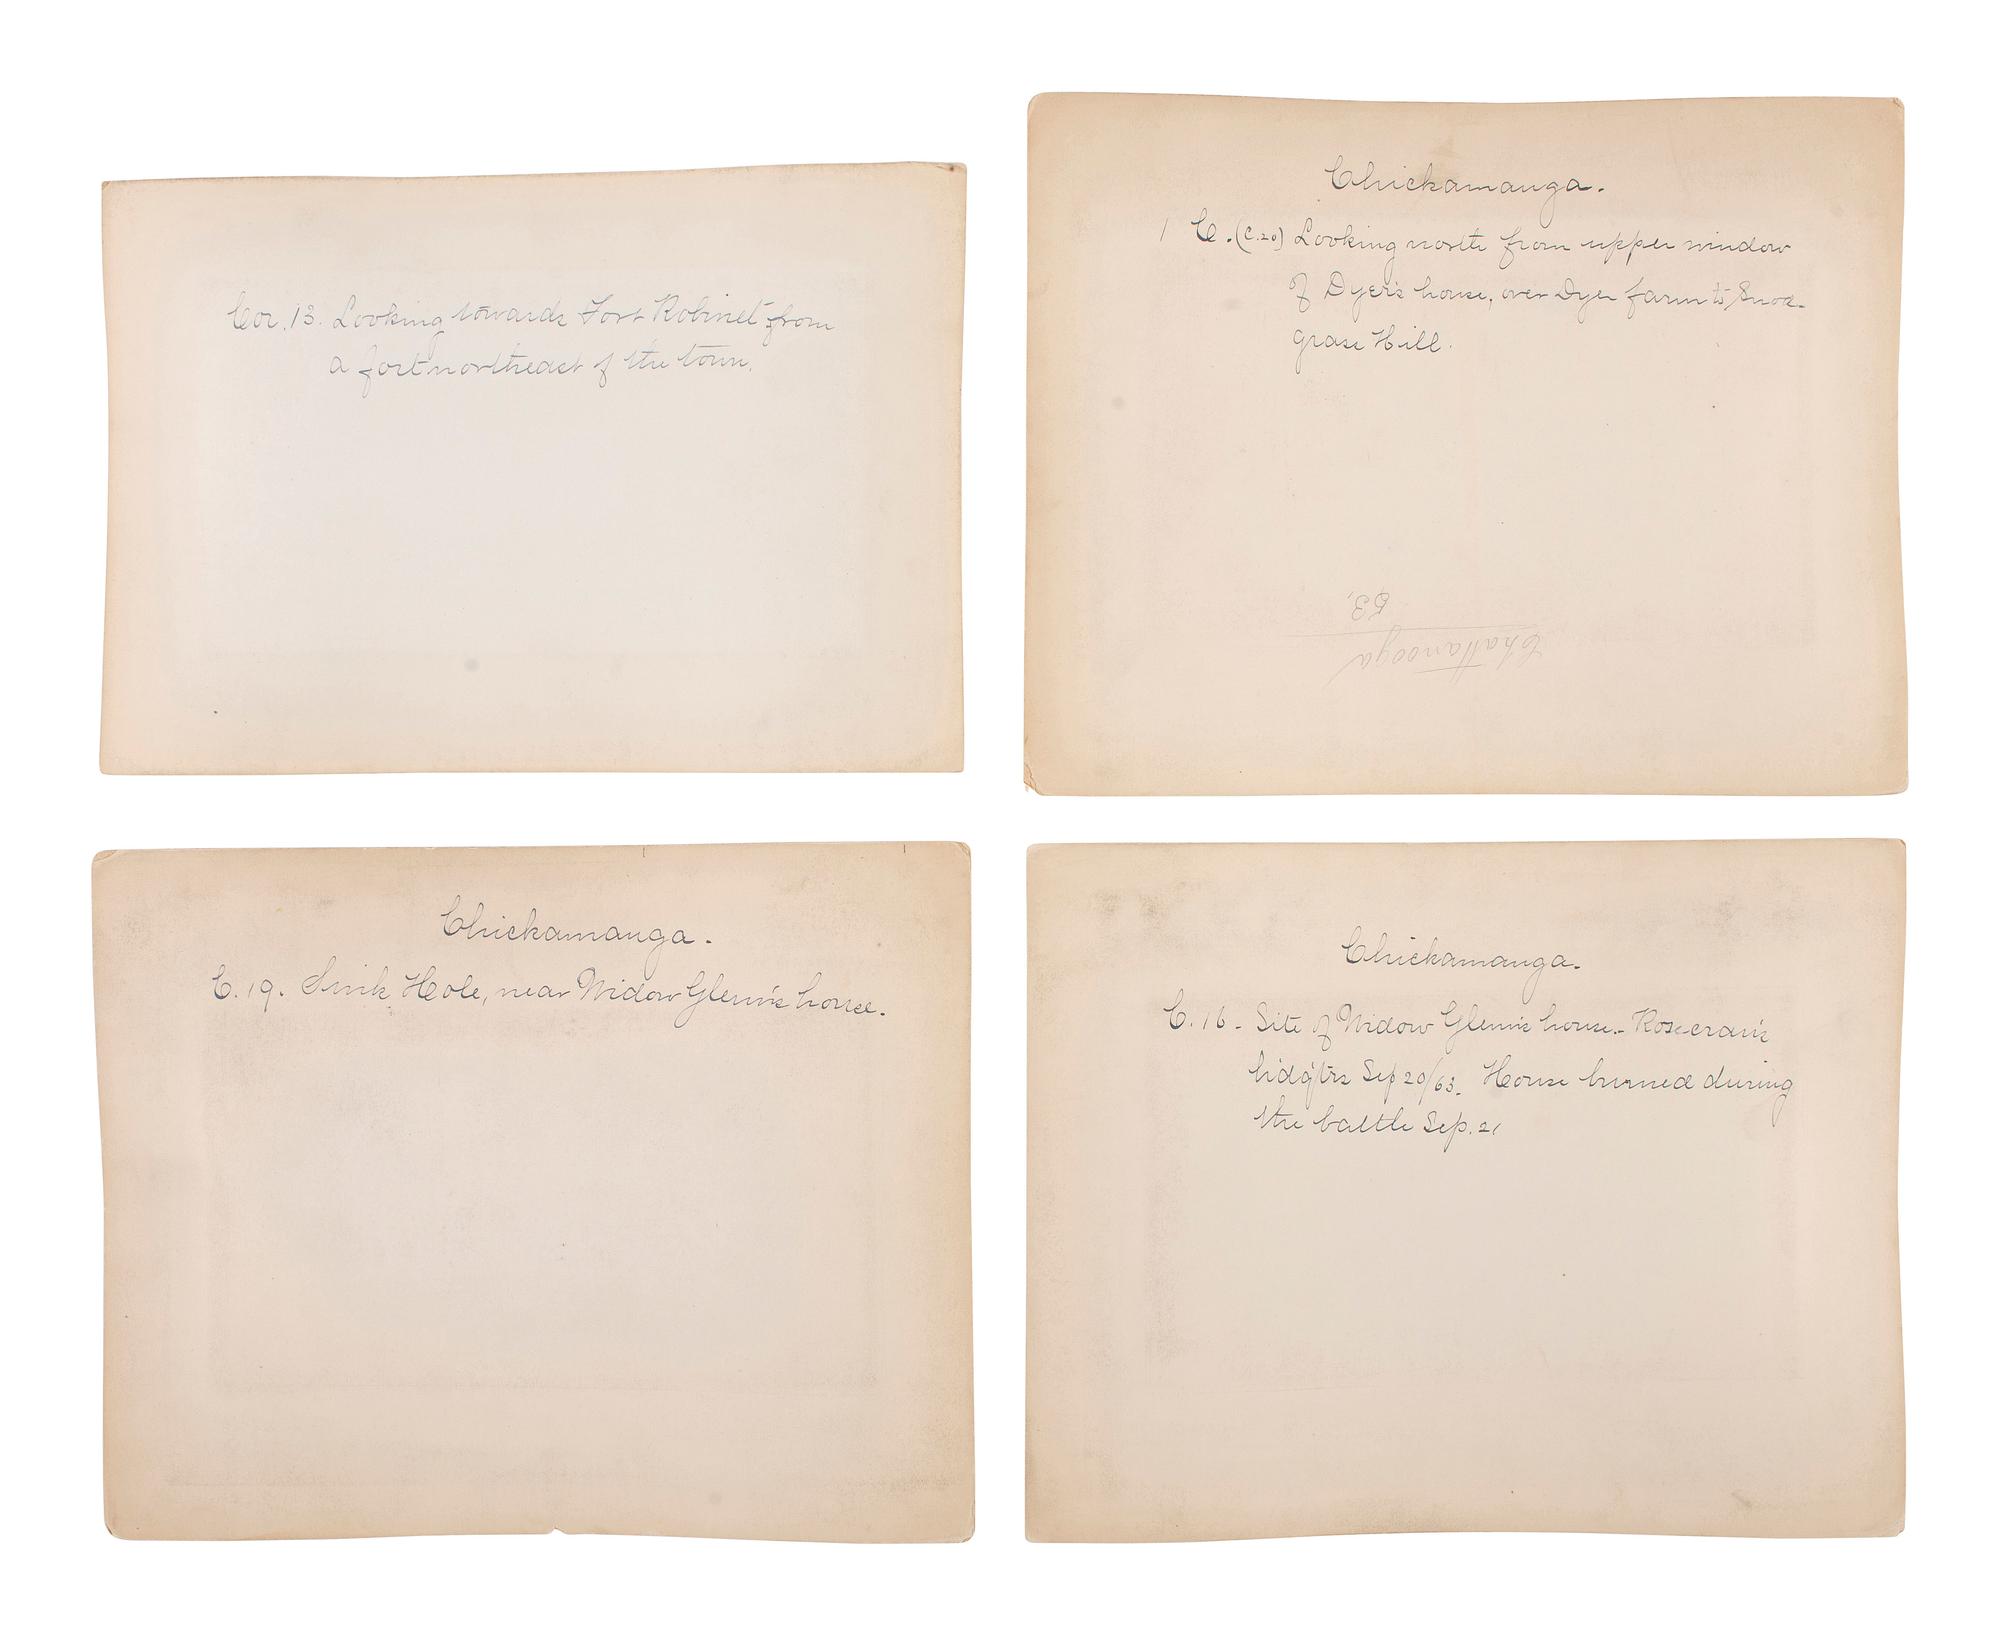 Cor. 13. Looking towards Fort Robinet from
a fort northeast of the town.
Chickamauga.
1 C. (C.20) Looking north from upper window
of Dyer's house, over Dyer farm to Snod-
grass Hill.
Chattanooga
53,
Chickamauga.
C. 19. Sink Hole, near Widow Glenn's house.
Chickamauga.
C. 16 - Site of Widow Glenn's house. - Rosecran's
hdqtrs Sep 20/63. House burned during
the battle Sep. 21